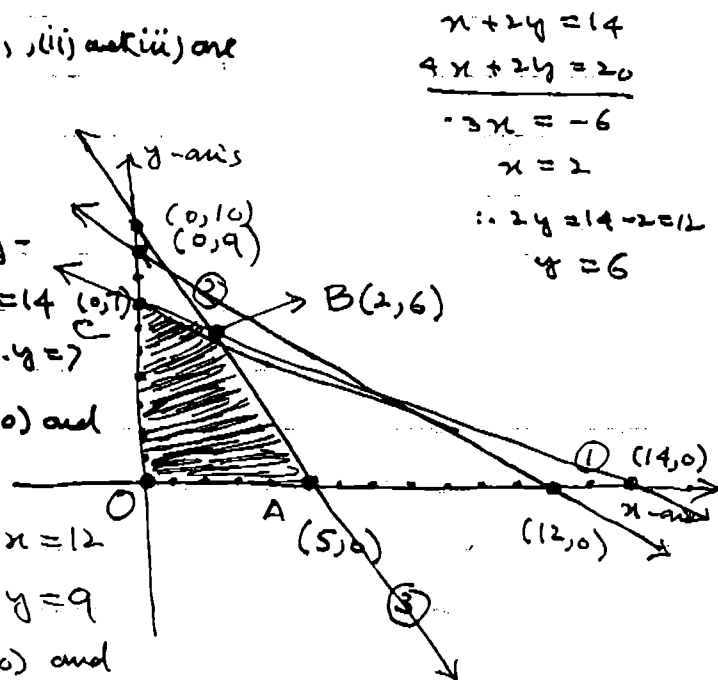 , (ii) and (iii) are
x + 2y = 14
4x + 2y = 20
-3x = -6
x = 2
∴ 2y = 14 - 2 = 12
y = 6
y-axis
(0,10)
(0,9)
y =
= 14 (0,7)
C
②
B(2,6)
. y = 7
0) and
① (14,0)
O A x-axis
(5,0) (12,0)
x = 12
y = 9
③
0) and